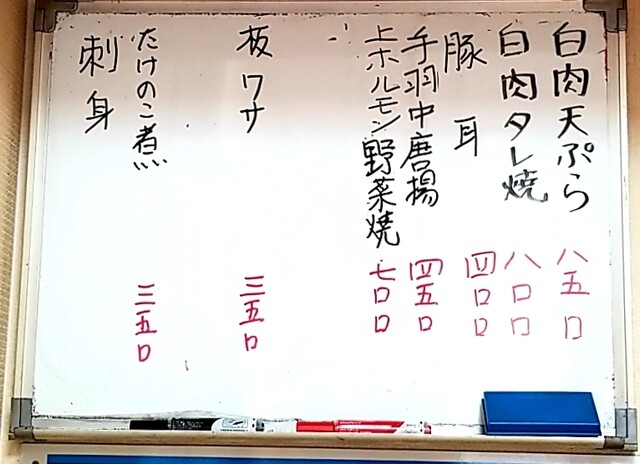 白肉天ぷら 八五〇
白肉タレ焼 八〇〇
豚耳 四〇〇
手羽中唐揚 四五〇
上ホルモン野菜焼 七〇〇
板ワサ 三五〇
たけのこ煮 三五〇
刺身